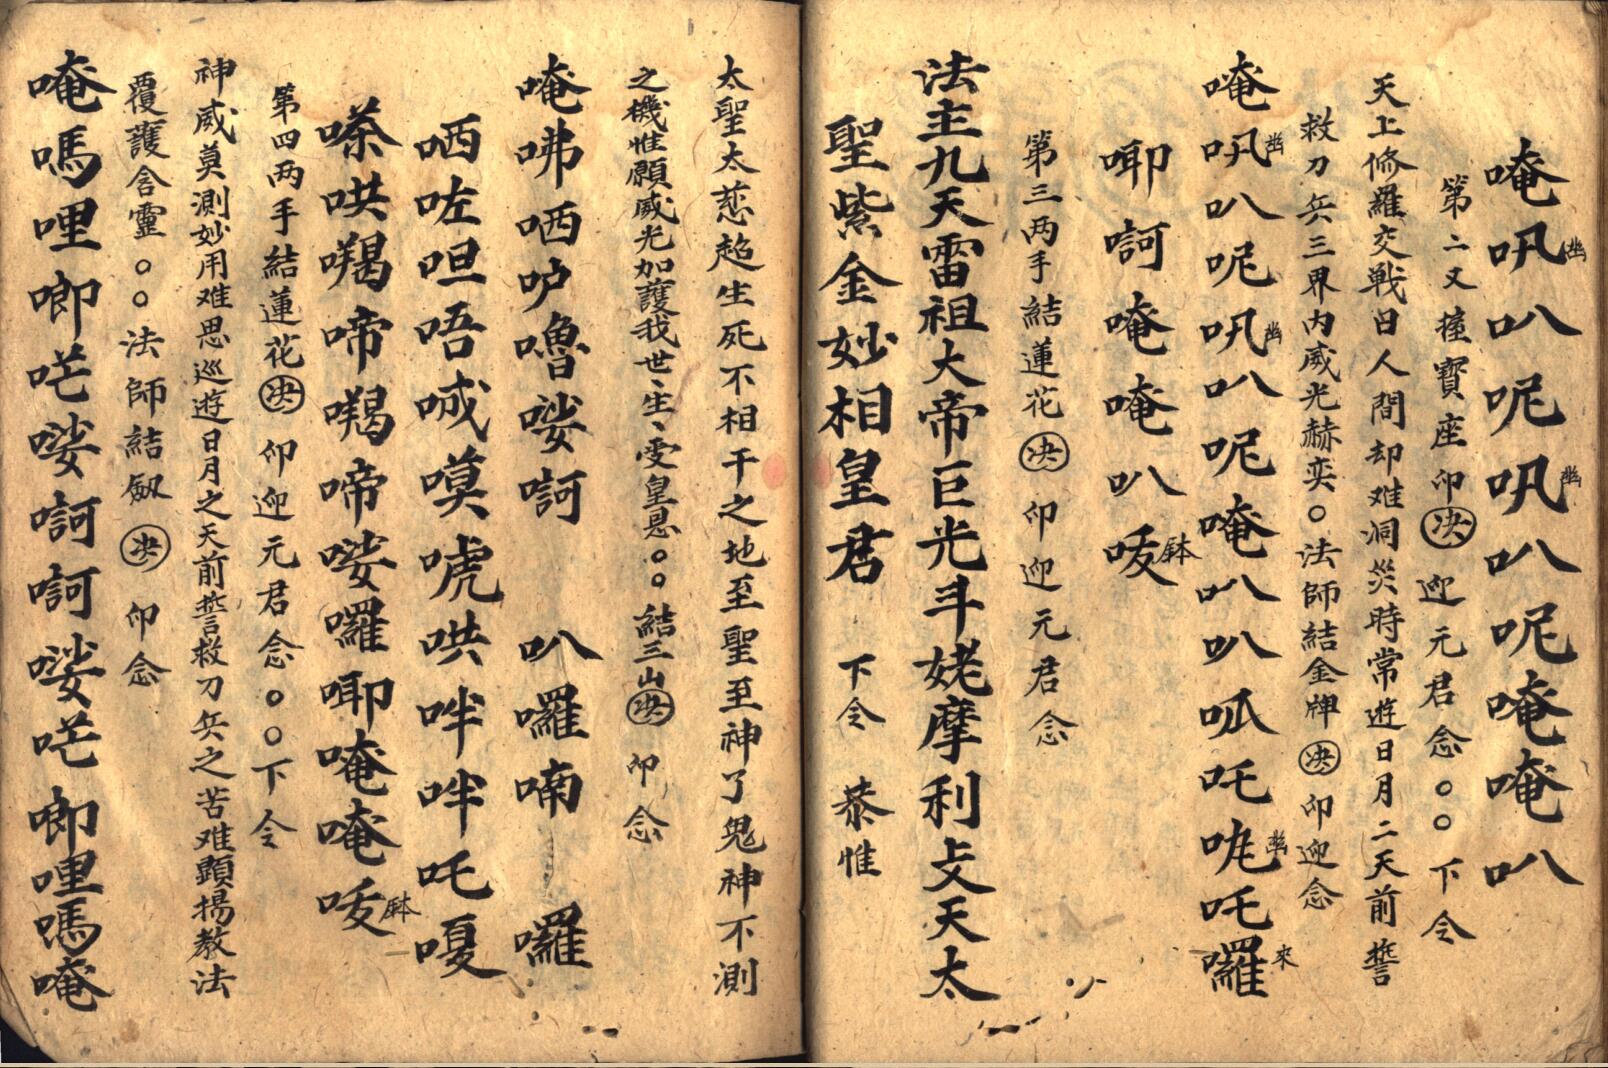 唵㕧叭呢㕧叭呢唵唵叭
第二叉撞寳座卬决迎元君念○○下令
天上修羅交戦日人間却难洞災時常遊日月二天前誓
救刀兵三界内威光赫奕○法師結金牌决卬迎念
唵㕧叭呢㕧叭呢唵叭叭呱吒㖳吒囉
唧訶唵唵叭㖫
第三两手結蓮花决卬迎元君念
法主九天雷祖大帝巨光斗姥摩利攴天太
聖紫金妙相皇君 下令 恭惟
太聖太慈超生死不相干之地至聖至神了鬼神不測
之機惟願威光加護我世〻生〻受皇恩○○結三山决卬念
唵咈哂吣嚕娑訶 叭囉喃 囉
哂咗呾唔㖅嘆唬哄哞哞吒嗄
嗏哄羯啼羯啼娑囉唧唵唵㖫
第四两手結蓮花决卬迎元君念○○下令
神威莫測妙用难思巡遊日月之天前誓救刀兵之苦难顕揚教法
覆護含靈○○法師結劔决卬念
唵嗎哩唧茫娑訶訶娑茫唧哩嗎唵